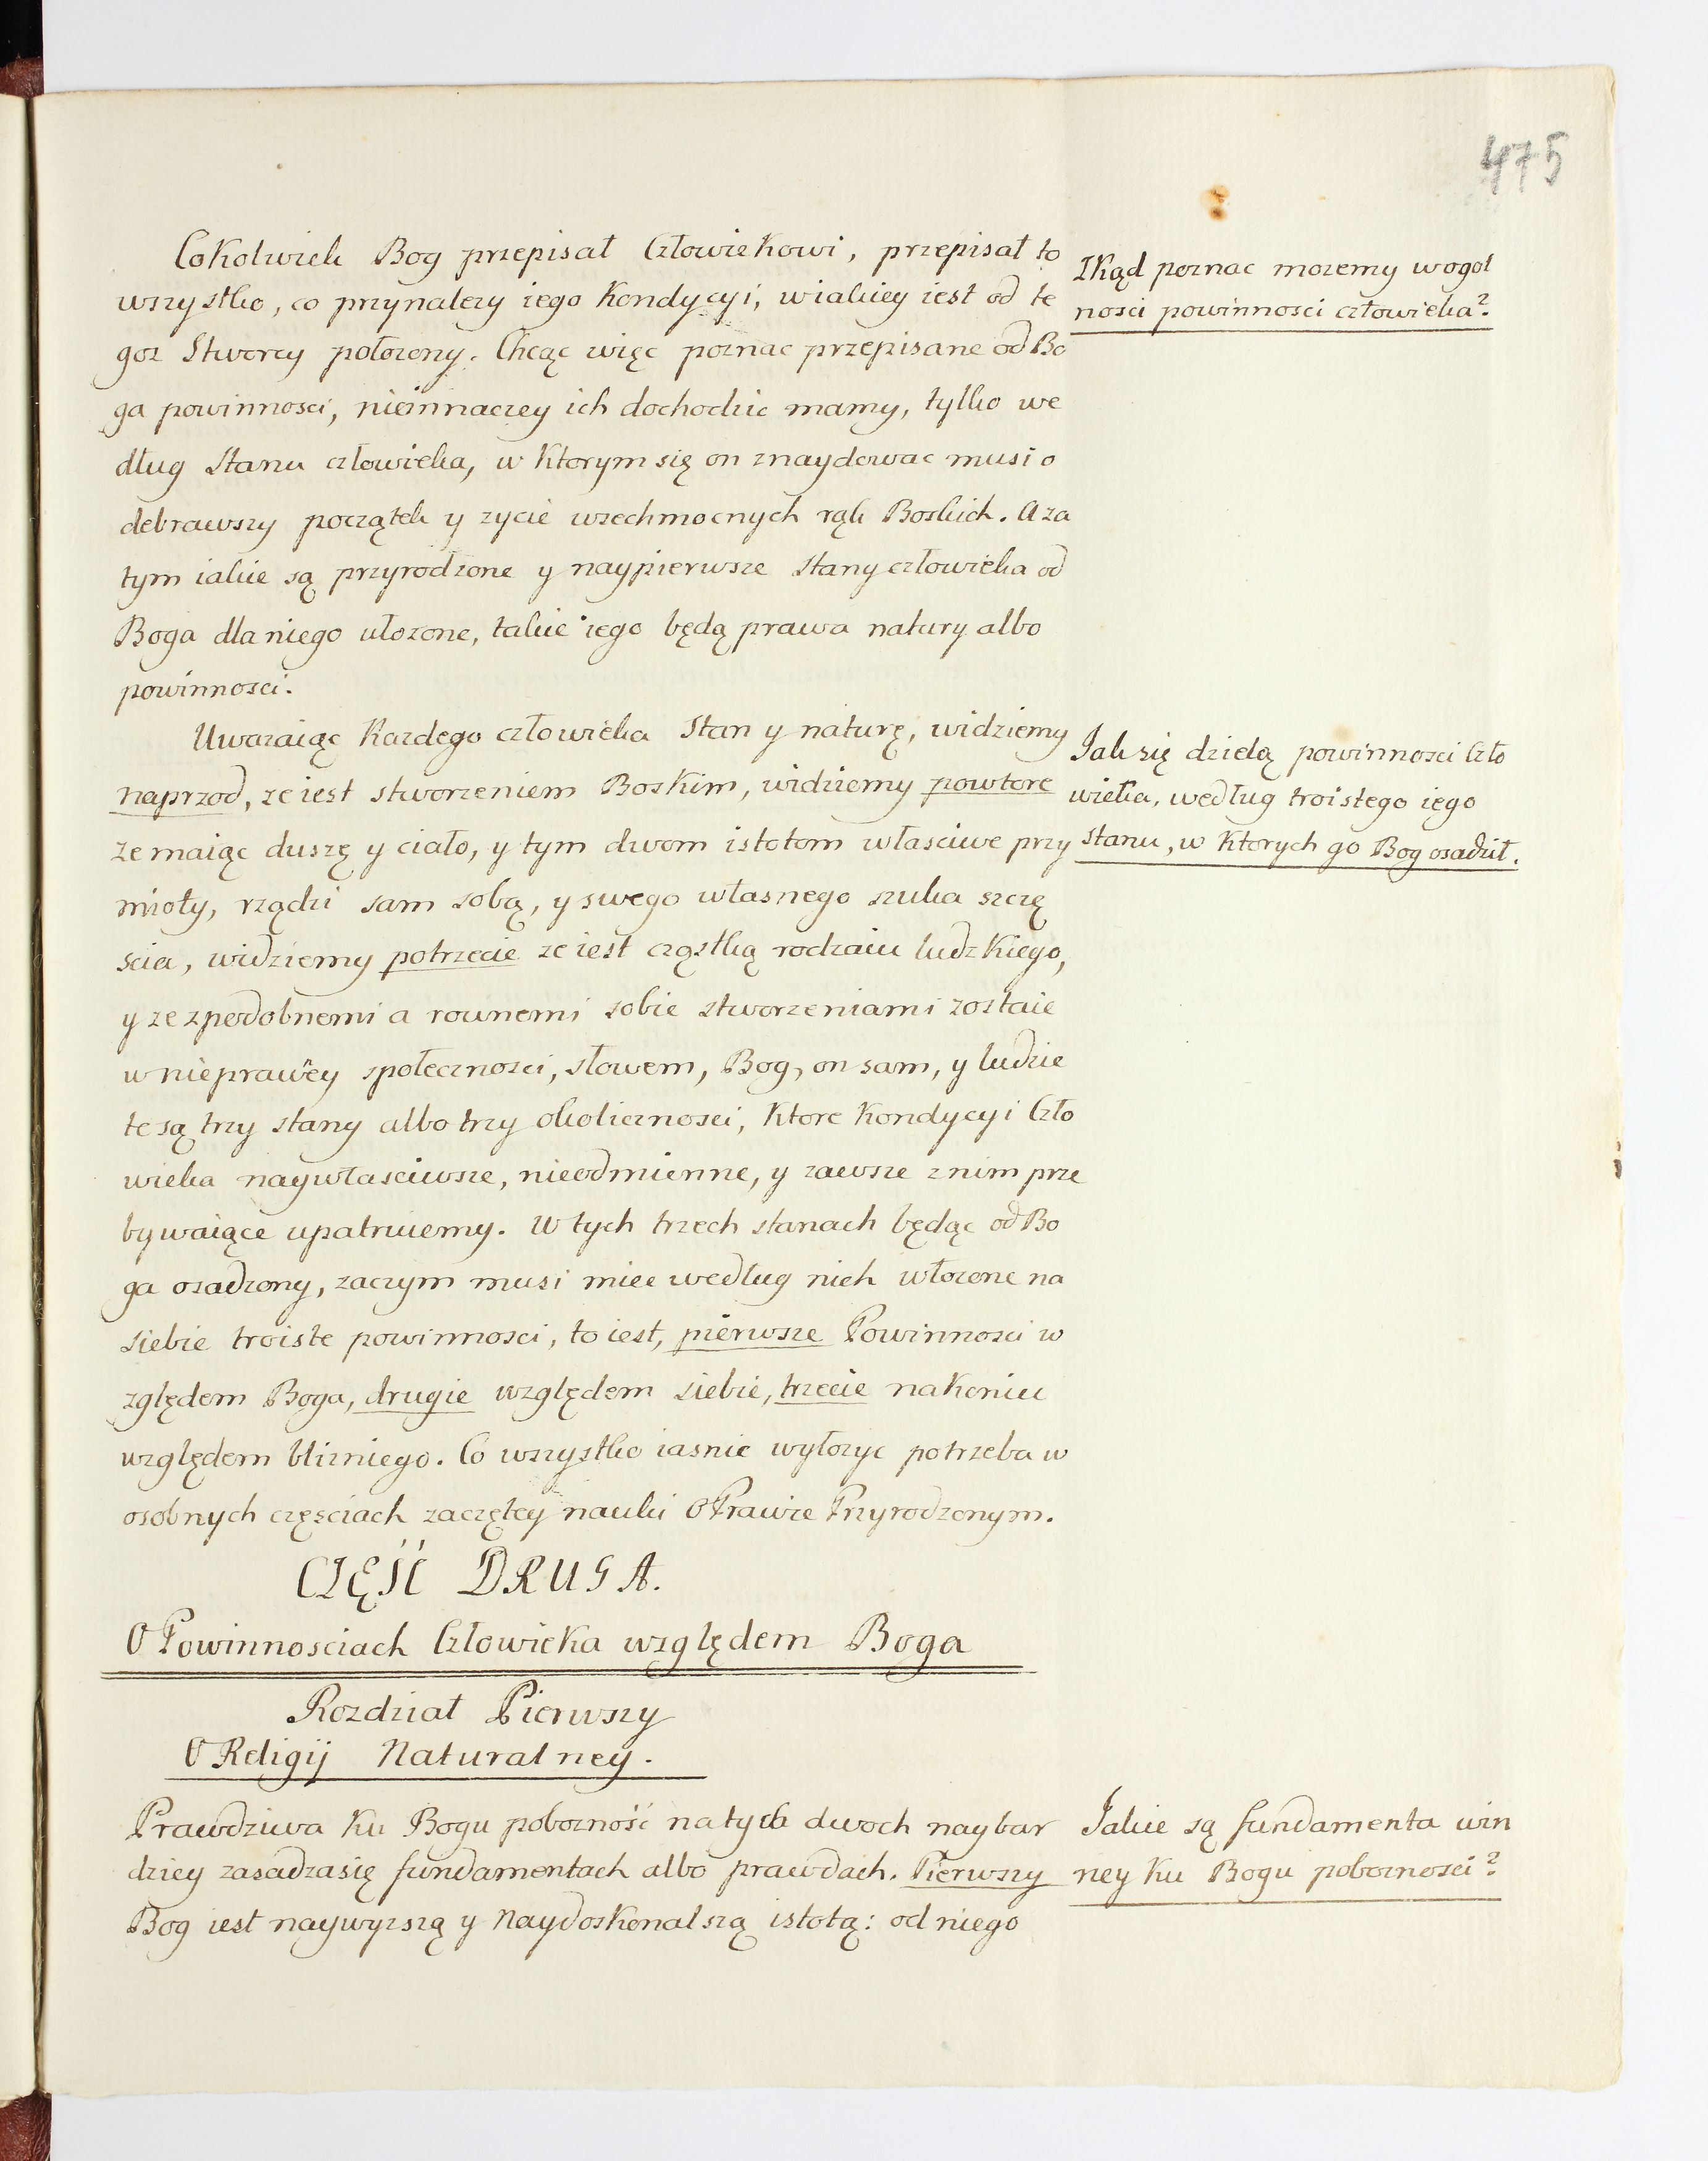 475
Cokolwiek Bog przepisał Człowiekowi, przepisał to
wszystko, co przynalezy iego Kondycyi, wiakiey iest od te
goz Stworcy położony. Chcąc więc poznac przepisane od Bo
ga powinnosci, nieinnaczey ich dochodzic mamy, tylko we
dług Stanu człowieka, w Ktorym się on znaydowac musi o
debrawszy początek y zycie wszechmocnych rąk Boskich. A za
tym iakie są przyrodzone y naypierwsze Stany człowieka od
Boga dla niego ułozone, takie iego będą prawa natury albo
powinnosci.
Zkąd poznac mozemy wogol
nosci powinnosci człowieka?
Uwazaiąc Kazdego człowieka Stan y naturę, widziemy
naprzod, ze iest stworzeniem Boskim, widziemy powtore
ze maiąc duszę y ciało, y tym dwom istotom własciwe przy
mioty, rządzi sam sobą, y swego własnego szuka szczę
scia, widziemy potrzecie ze iest cząstką rodzaiu ludzkiego,
y ze zpodobnemi a rownemi sobie stworzeniami zostaie
w nieprawey społecznosci, słowem, Bog, on sam, y ludzie
te są trzy stany albo trzy okolicznosci, Ktore Kondycyi Czło
wieka naywłasciwsze, nieodmienne, y zawsze z nim prze
bywaiące upatruiemy. W tych trzech stanach będąc od Bo
ga osadzony, zaczym musi miec według nich włozone na
siebie troiste powinnosci, to iest, pierwsze Powinnosci w
zględem Boga, drugie względem siebie, trzecie nakoniec
względem blizniego. Co wszystko iasnie wyłozyc potrzeba w
osobnych częsciach zaczętey nauki O Prawie Przyrodzonym.
Jak się dzielą powinnosci Czło
wieka, według troistego iego
stanu, w Ktorych go Bog osadził.
CZĘŚĆ DRUGA.
O Powinnosciach Człowieka względem Boga
Rozdział Pierwszy
O Religij Naturalney.
Prawdziwa Ku Bogu pobozność na tych dwoch naybar
dziey zasadza się fundamentach albo prawdach. Pierwszy
Bog iest naywyzszą y Naydoskonalszą istotą: od niego
Jakie są fundamenta win
ney Ku Bogu poboznosci?